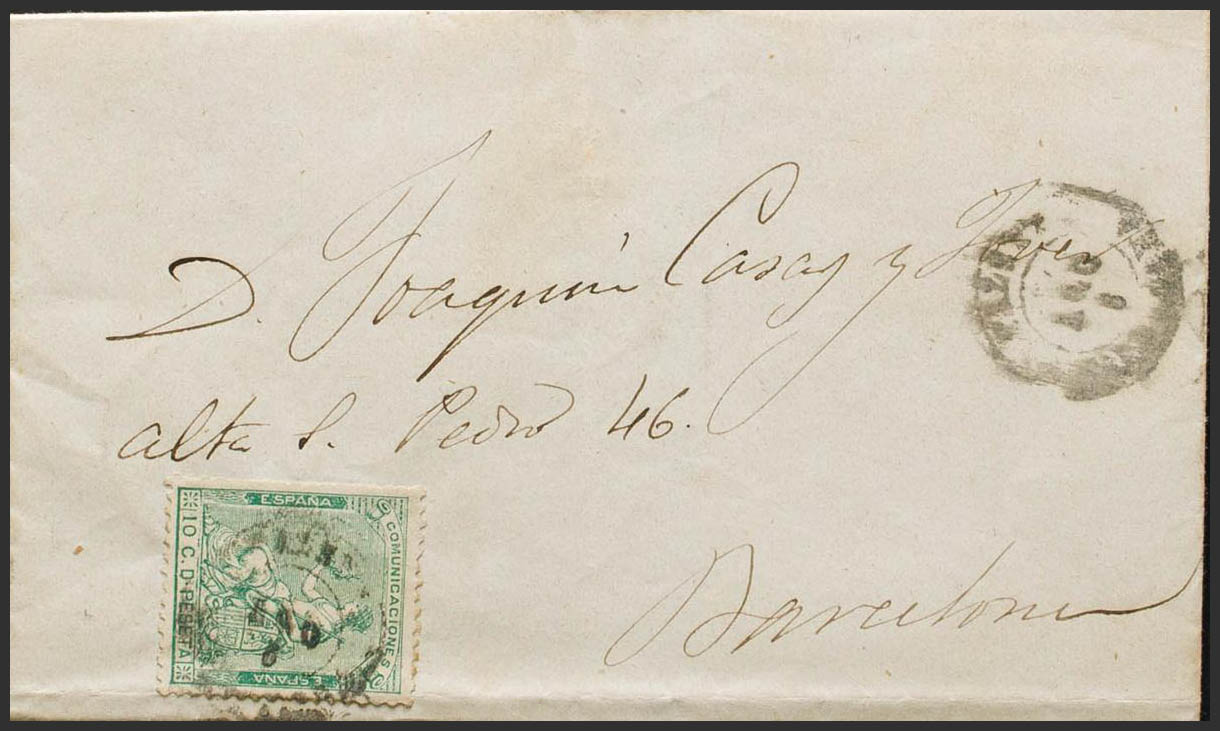 D. Joaquin Casas y Jover
alta S. Pedro 46.
Barcelona
ESPAÑA
COMUNICACIONES
10 C. D. PESETA
ESPAÑA
AGO
6